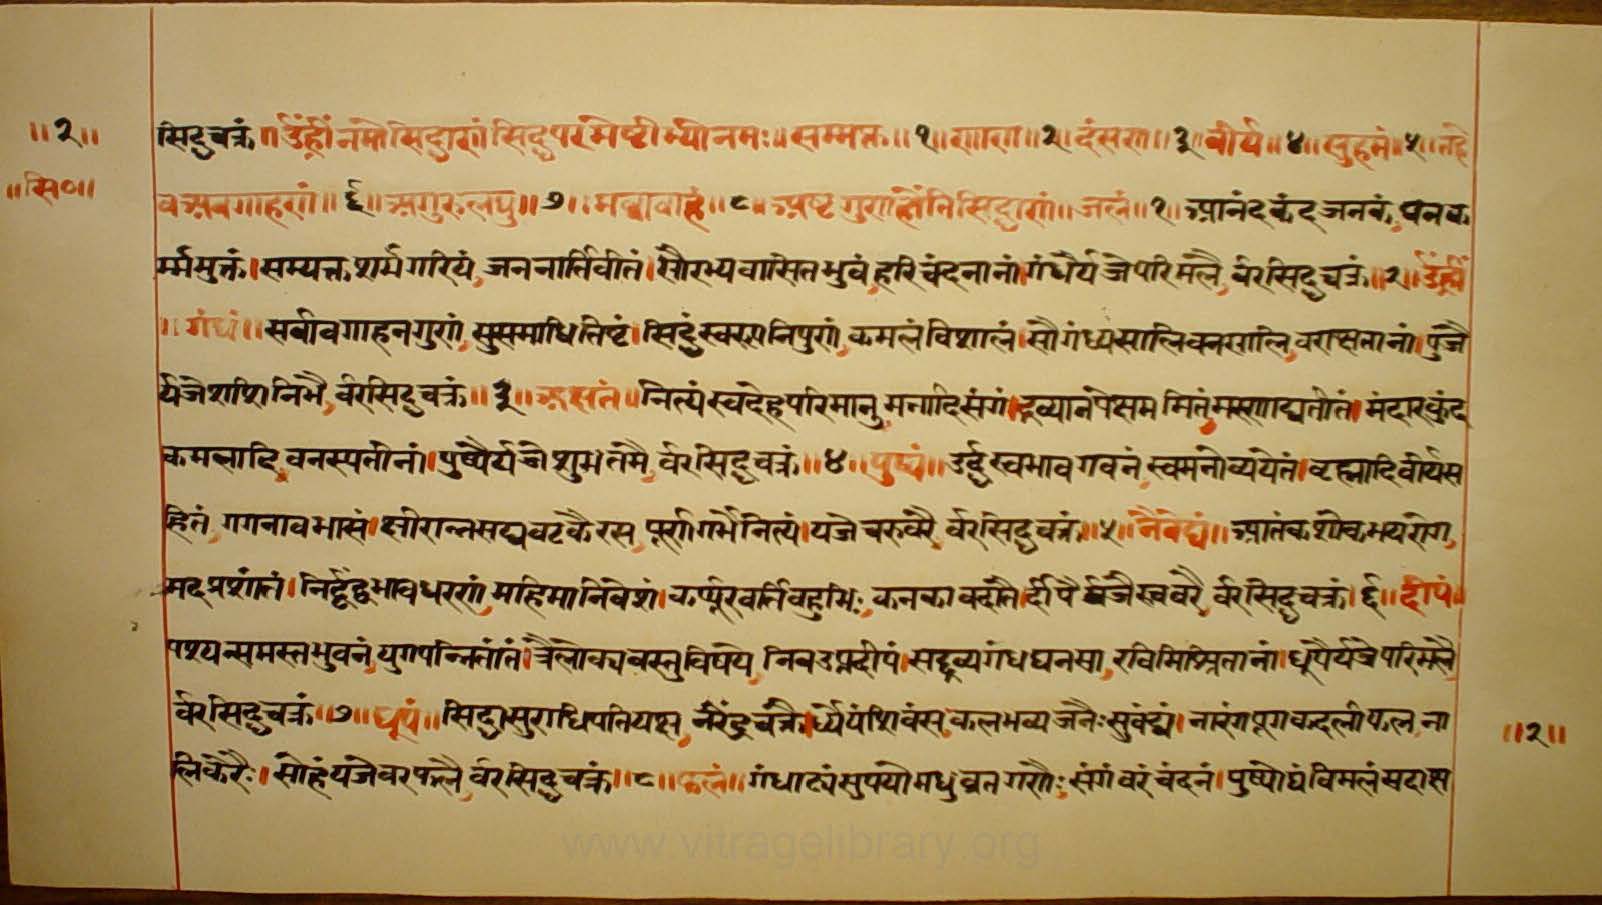 ॥२॥
॥सि०॥
सिद्धचक्रं॥ उँह्रीं नमो सिद्धाणं सिद्धपरमेष्टीभ्यो नमः॥ सम्मत्त॥१॥ णाण॥२॥ दंसण॥३॥ वीर्य॥४॥ सुहमं॥५॥ तहे
वअवगाहणं॥६॥ अगुरुलघु॥७॥ मव्वावाहं॥८॥ अष्टगुणा होंति सिद्धाणं॥ जलं॥१॥ आनंदकंदजनकं, घनक
र्म्ममुक्तं। सम्यक्तशर्मगरियं, जननार्तिवीतं। सौरभ्यवासितभुवं, हरिचंदनानां। गंधैर्यजेपरिमलै, र्वरसिद्धचक्रं॥२॥ उँह्रीं
॥गंधं॥ सर्वावगाहनगुणं, सुसमाधितिष्टं। सिद्धंस्वरूपनिपुणं, कमलंविशालं। सौगंध्यसालिवनसालि, वराक्षतानां। पुंजै
र्यजेशशिनिभै, र्वरसिद्धचक्रं॥३॥ अक्षतं॥ नित्यंस्वदेहपरिमानु, मनादिसंगं। द्रव्यानपेक्षममितं, मरणाद्यतीतं। मंदारकुंद
कमलादि, वनस्पतीनां। पुष्पैर्यजेशुभतमै, र्वरसिद्धचक्रं॥४॥ पुष्पं॥ उर्द्धस्वभावगवनं, स्वमनोव्यपेतं। ब्रह्मादिवीर्यस
हितं, गगनावभासं। क्षीरान्नसद्यवटकैरस, पूर्णगर्भैनित्यं। यजेचरुवरै, र्वरसिद्धचक्रं॥५॥ नैवेद्यं॥ आतंकशोकभयरोग,
मदप्रशांतं। निर्द्वंद्वभावधरणं, महिमानिवेशं। कर्प्पूरवर्तिबहुभिः, कनकावदांतै। र्दीपैर्यजैरुववरै, र्वरसिद्धचक्रं।६॥ दीपं॥
पश्यन्समस्तभुवनं, युगपन्नितांतं। त्रैलोक्यवस्तुविषये, निवडप्रदीपं। सद्द्रव्यगंधघनसा, रविमिश्रितानां। धूपैर्यजेपरिमलै
र्वरसिद्धचक्रं॥७॥ धूपं॥ सिद्धासुराधिपतियक्ष, नरेंद्रचक्रै। र्ध्येयंशिवंस, कलभव्यजनैःसुवंद्यं। नारंगपूगकदलीफल, ना
लिकेरैः। सोहंयजेवरफलै, र्वरसिद्धचक्रं॥८॥ फलं॥ गंधाढ्यंसुपयोमधुव्रतगणैः, संगंवरंचंदनं। पुष्पौघंविमलंसदाक्ष
॥२॥
www.vitragelibrary.org